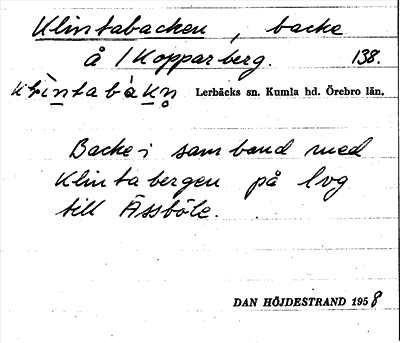 Klintabacken, backe
å 1 Kopparberg. 138.
klìntabàkn̥ Lerbäcks sn. Kumla hd. Örebro län.
Backe i samband med
Klintabergen på lvg
till Åssböle.
DAN HÖJDESTRAND 1958